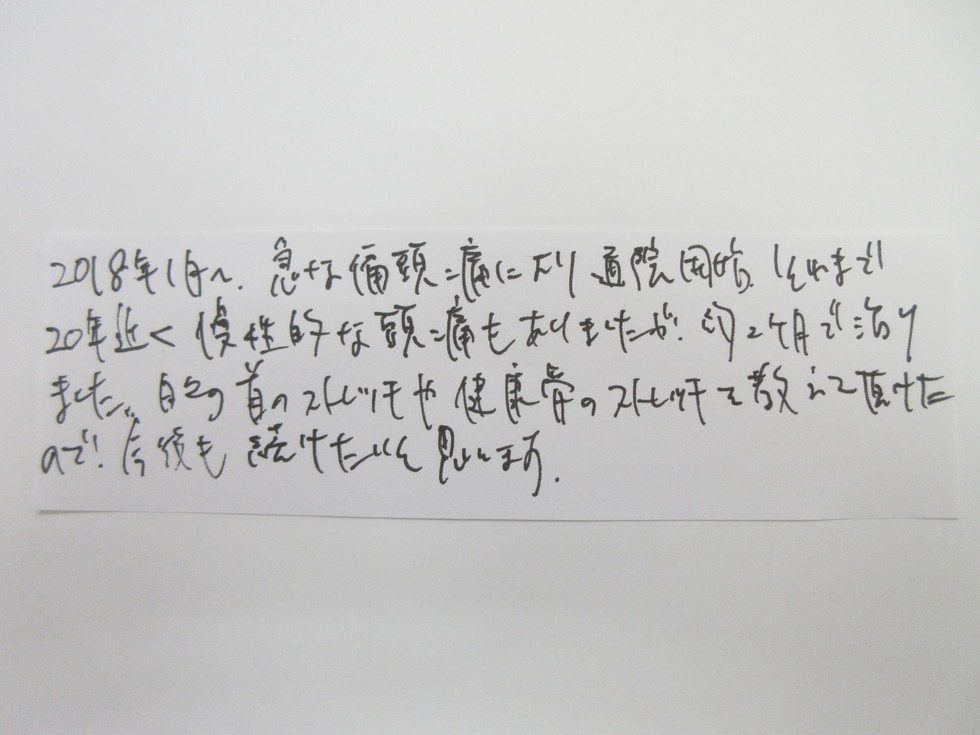 2018年1月〜.急な偏頭痛になり通院開始.それまで
20年近く慢性的な頭痛もありましたが.約2ケ月で治り
ました。日々の首のストレッチや健康骨のストレッチを教えて頂けた
ので.今後も続けたいと思います.